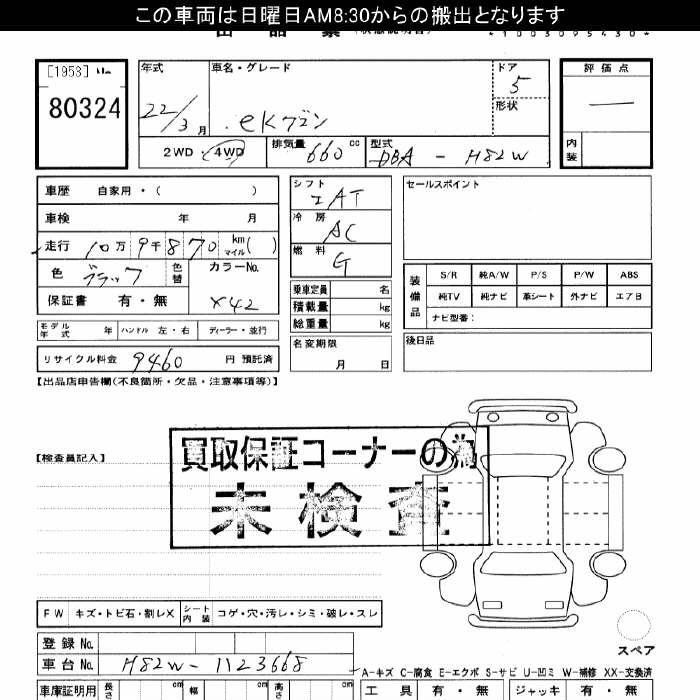 この車両は日曜日AM8:30からの搬出となります
[1953] No
80324
年式
22/3月
車名・グレード
ekワゴン
ドア
5
形状
評価点
―
内装
2WD・4WD
排気量 660 cc
型式 DBA - H82W
車歴 自家用・( )
車検 年 月
走行 10万9千870 km マイル( )
色 ブラック
色替
カラーNo.
X42
保証書 有・無
モデル年式 年
ハンドル 左・右
ディーラー・並行
リサイクル料金 9460 円 預託済
シフト
IAT
冷房
AC
燃料
G
乗車定員 名
積載量 kg
総重量 kg
名変期限
月 日
セールスポイント
装備品
S/R 純A/W P/S P/W ABS
純TV 純ナビ 革シート 外ナビ エアB
ナビ型番:
後日品
【出品店申告欄(不良箇所・欠品・注意事項等)】
【検査員記入】
買取保証コーナーの為
未検査
FW キズ・トビ石・割レX
シート内装 コゲ・穴・汚レ・シミ・破レ・スレ
登録No.
車台No. H82W-1123668
スペア
A-キズ C-腐食 E-エクボ S-サビ U-凹ミ W-補修 XX-交換済
車庫証明用 長さ cm 幅 cm 高さ cm
工具 有・無 ジャッキ 有・無